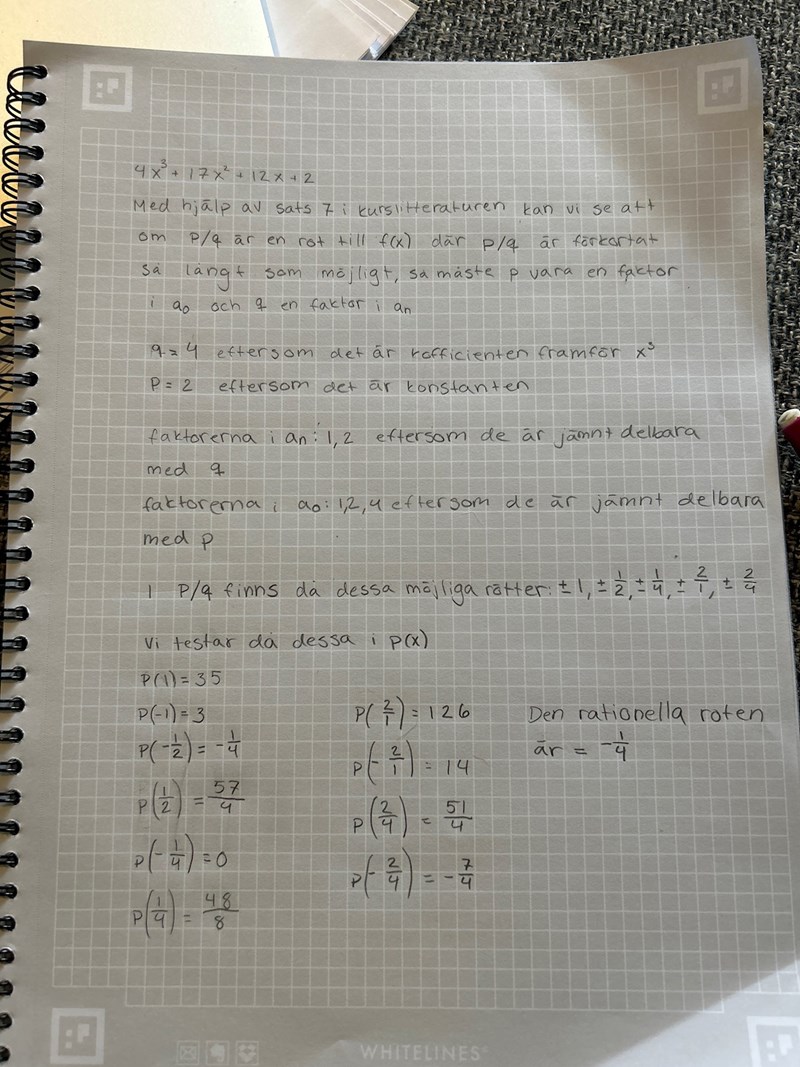 4x³ + 17x² + 12x + 2
Med hjälp av sats 7 i kurslitteraturen kan vi se att
om P/q är en rot till f(x) där p/q är förkortat
så långt som möjligt, så måste p vara en factor
i a₀ och q en faktor i an
q = 4 eftersom det är kofficienten framför x³
P = 2 eftersom det är konstanten
faktorerna i an: 1, 2 eftersom de är jämnt delbara
med q
faktorerna i a₀: 1, 2, 4 eftersom de är jämnt delbara
med p
I P/q finns då dessa möjliga rötter: ± 1, ± 1/2, ± 1/4, ± 2/1, ± 2/4
Vi testar då dessa i p(x)
P(1) = 35
P(-1) = 3
P(-1/2) = -1/4
P(1/2) = 57/4
P(-1/4) = 0
P(1/4) = 48/8
P(2/1) = 126
P(-2/1) = 14
P(2/4) = 51/4
P(-2/4) = -7/4
Den rationella roten
är = -1/4
WHITELINES®